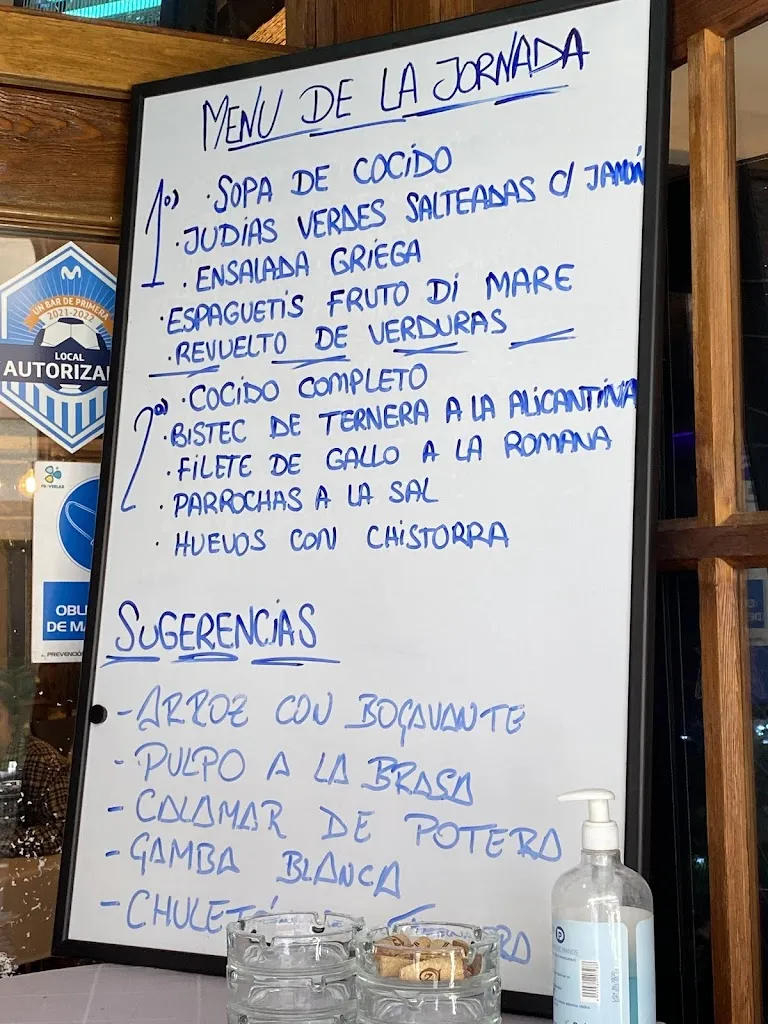 MENU DE LA JORNADA
1º)
· SOPA DE COCIDO
· JUDIAS VERDES SALTEADAS C/ JAMÓN
· ENSALADA GRIEGA
· ESPAGUETIS FRUTO DI MARE
· REVUELTO DE VERDURAS
2º)
· COCIDO COMPLETO
· BISTEC DE TERNERA A LA ALICANTINA
· FILETE DE GALLO A LA ROMANA
· PARROCHAS A LA SAL
· HUEVOS CON CHISTORRA
SUGERENCIAS
- ARROZ CON BOGAVANTE
- PULPO A LA BRASA
- CALAMAR DE POTERA
- GAMBA BLANCA
- CHULETÓ
UN BAR DE PRIMERA
2021-2022
LOCAL
AUTORIZA
PREVERLAB
OBLI
DE MA
PREVENCIÓ